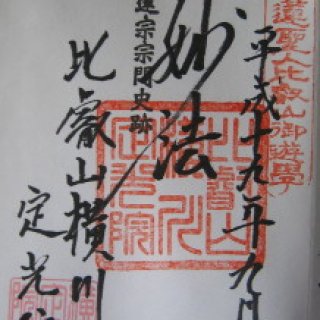 蓮聖人比叡山御遊學
平成十九年九月
妙法
蓮宗宗門史跡
比叡山横川
定光